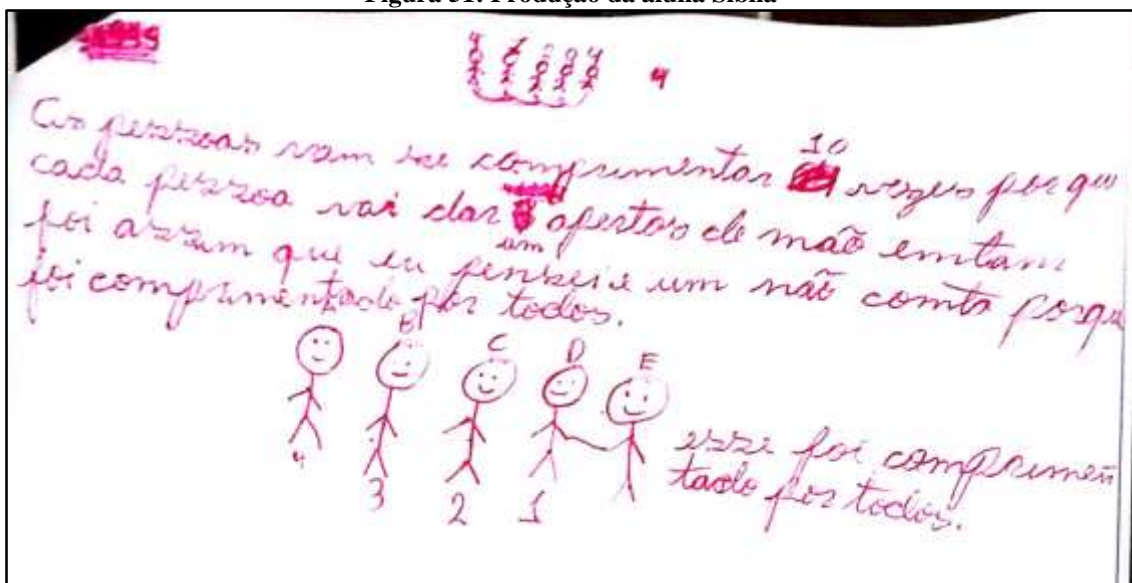 Figura 31: Produção da aluna Sibila
4
10
As pessoas vam se comprimentar vezes porque
cada pessoa vai dar apertos de mão emtam
um
foi assim que eu pensei e um não comta porque
foi comprimentado por todos.
B C D E
esse foi comprimen
tado por todos.
4 3 2 1